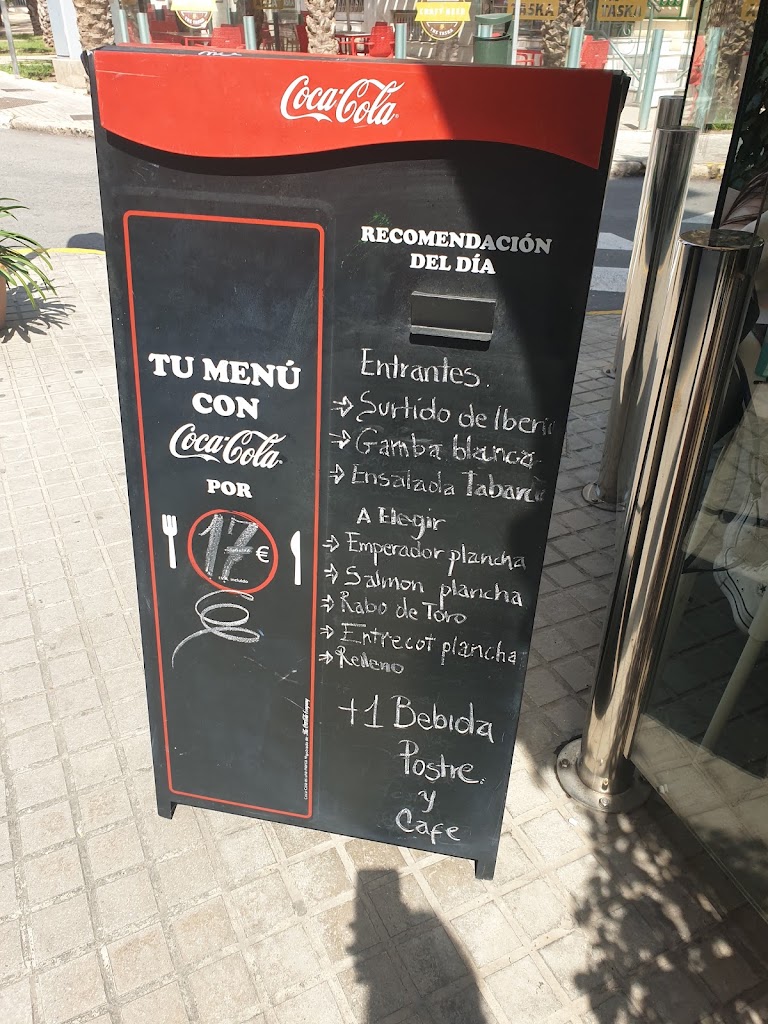 TASKA
TASKA
TASKA
Coca-Cola
RECOMENDACIÓN
DEL DÍA
TU MENÚ
CON
Coca-Cola
POR
17 €
Entrantes.
→ Surtido de Iberic
→ Gamba blanca
→ Ensalada
A Elegir
→ Emperador plancha
→ Salmon plancha
→ Rabo de Toro
→ Entrecot plancha
→ Relleno
+1 Bebida
Postre.
y
Cafe